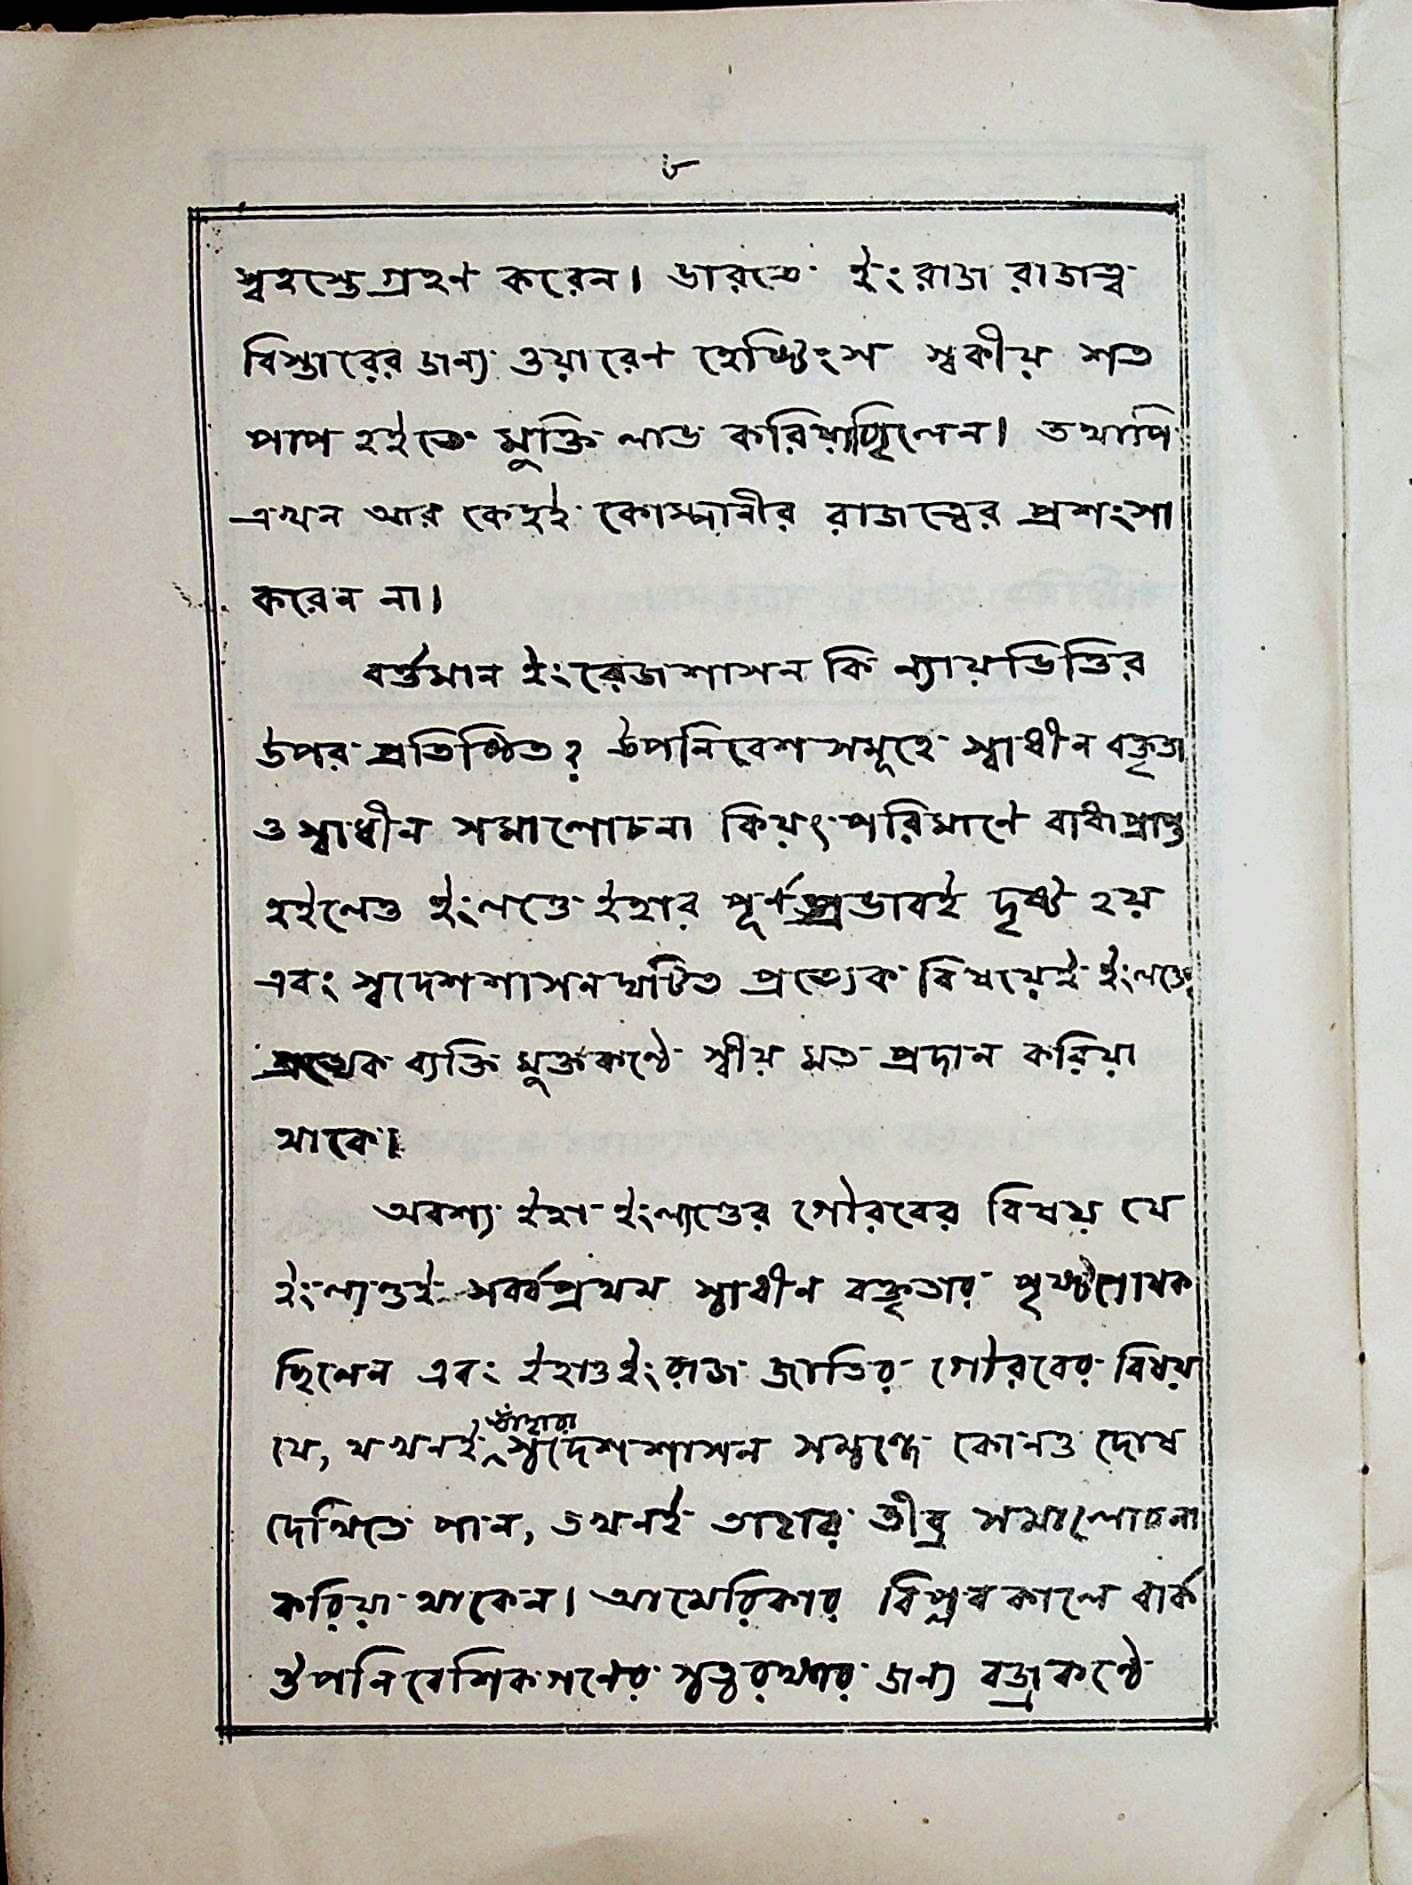 ৮
স্বহস্তে গ্রহণ করেন। ভারতে ইংরাজ রাজত্ব
বিস্তারের জন্য ওয়ারেণ হেষ্টিংস স্বকীয় শত
পাপ হইতে মুক্তি লাভ করিয়াছিলেন। তথাপি
এখন আর কেহই কোম্পানীর রাজত্বের প্রশংসা
করেন না।
বর্ত্তমান ইংরেজশাসন কি ন্যায়ভিত্তির
উপর প্রতিষ্ঠিত? উপনিবেশসমূহে স্বাধীন বক্তৃতা
ও স্বাধীন সমালোচনা কিয়ৎপরিমাণে বাধাপ্রাপ্ত
হইলেও ইংলণ্ডে ইহার পূর্ণপ্রভাবই দৃষ্ট হয়
এবং স্বদেশশাসনঘটিত প্রত্যেক বিষয়েই ইংলণ্ডের
প্রত্যেক ব্যক্তি মুক্তকণ্ঠে স্বীয় মত প্রদান করিয়া
থাকে।
অবশ্য ইহা ইংল্যণ্ডের গৌরবের বিষয় যে
ইংল্যণ্ডই সর্ব্বপ্রথম স্বাধীন বক্তৃতার পৃষ্ঠপোষক
ছিলেন এবং ইহাও ইংরাজ জাতির গৌরবের বিষয়
যে, যখনই তাঁহারা স্বদেশশাসন সম্বন্ধে কোনও দোষ
দেখিতে পান, তখনই তাহার তীব্র সমালোচনা
করিয়া থাকেন। আমেরিকার বিপ্লবকালে বার্ক
ঔপনিবেশিকগণের স্বত্বরক্ষার জন্য বজ্রকণ্ঠে